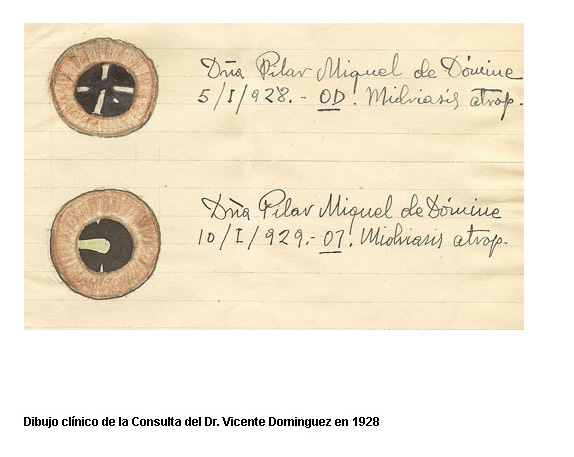 Dña Pilar Miguel de Dómine
5/I/928.- OD. Midriasis atrop.
Dña Pilar Miguel de Dómine
10/I/929.- OI. Midriasis atrop.
Dibujo clínico de la Consulta del Dr. Vicente Dominguez en 1928